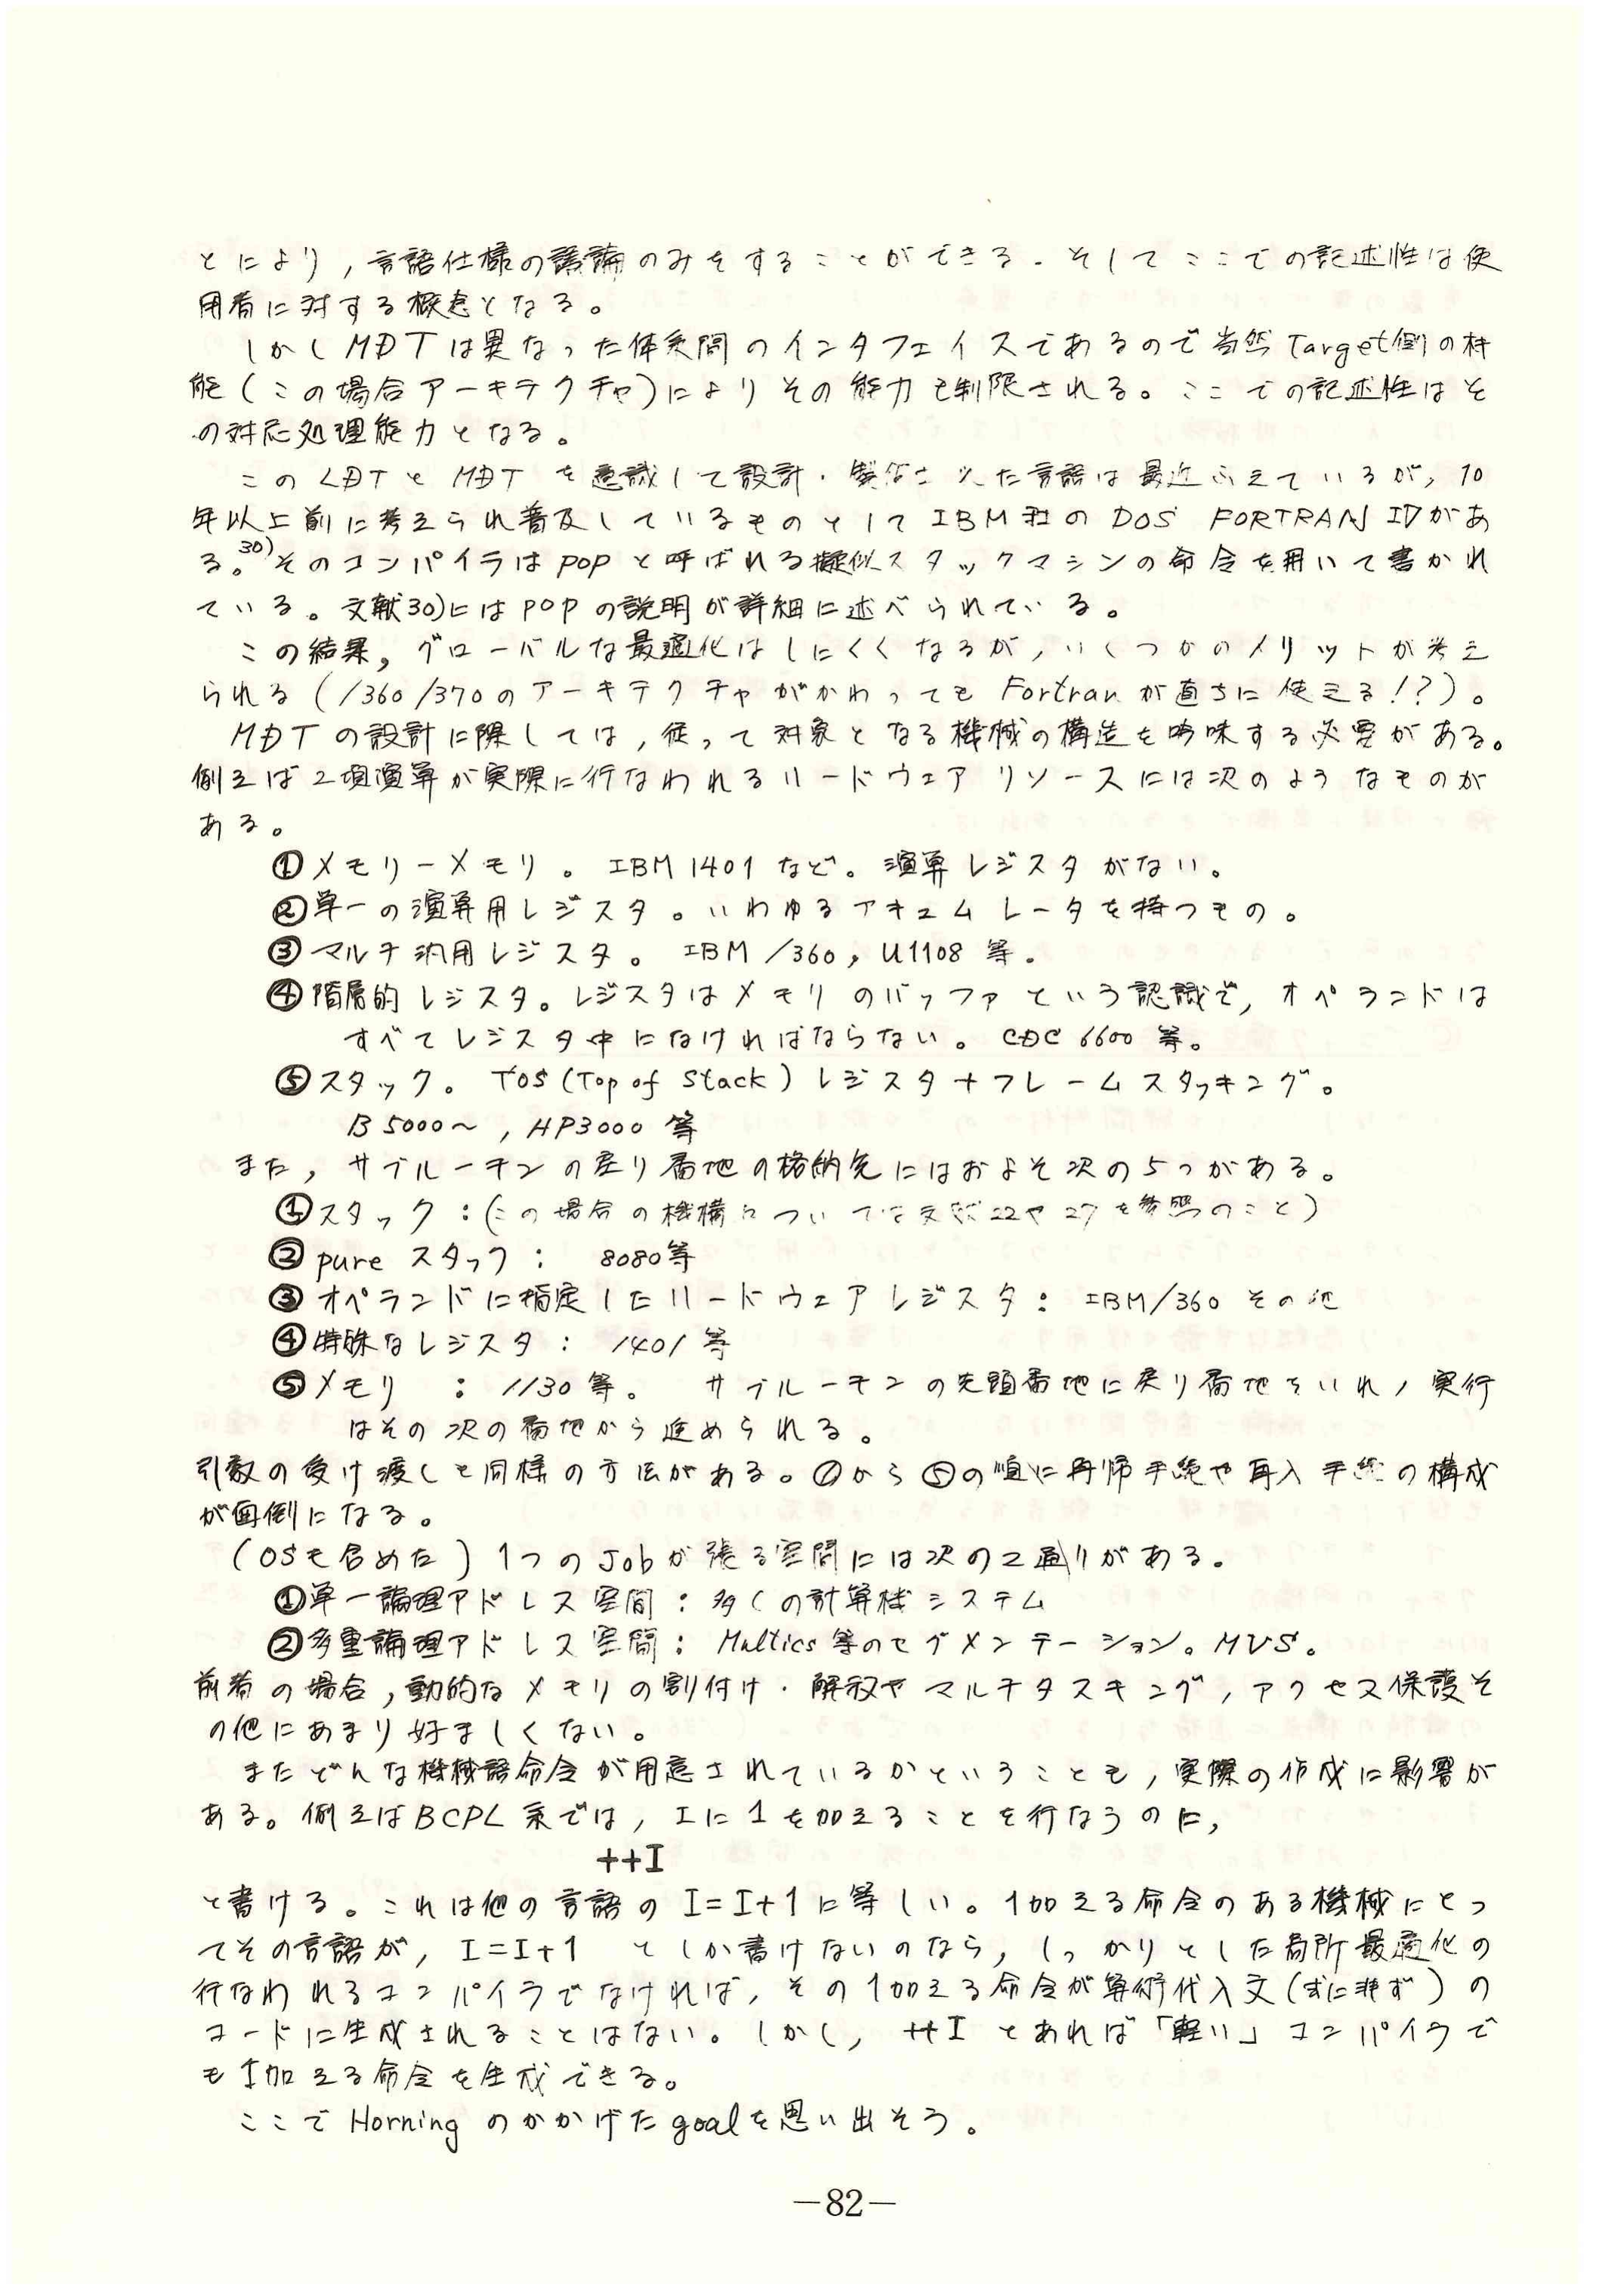 とにより,言語仕様の議論のみをすることができる。そしてここでの記述性は使
用者に対する概念となる。
しかしMDTは異なった体系間のインタフェイスであるので当然Target側の材
能(この場合アーキテクチャ)によりその能力も制限される。ここでの記述性はそ
の対応処理能力となる。
このLDTとMDTを意識して設計・製作された言語は最近ふえているが,10
年以上前に考えられ普及しているものとしてIBM社のDOS FORTRAN IVがあ
る。30)そのコンパイラはPOPと呼ばれる擬似スタックマシンの命令を用いて書かれ
ている。文献30)にはPOPの説明が詳細に述べられている。
この結果,グローバルな最適化はしにくくなるが,いくつかのメリットが考え
られる(/360/370のアーキテクチャがかわってもFortranが直ちに使える!?)。
MDTの設計に際しては,従って対象となる機械の構造を吟味する必要がある。
例えば2項演算が実際に行なわれるハードウェアリソースには次のようなものが
ある。
①メモリーメモリ。IBM 1401など。演算レジスタがない。
②単一の演算用レジスタ。いわゆるアキュムレータを持つもの。
③マルチ汎用レジスタ。IBM/360,U1108等。
④階層的レジスタ。レジスタはメモリのバッファという認識で,オペランドは
すべてレジスタ中になければならない。CDC 6600等。
⑤スタック。TOS(Top of Stack)レジスタ+フレームスタッキング。
B5000~,HP3000等
また,サブルーチンの戻り番地の格納先にはおよそ次の5つがある。
①スタック:(この場合の機構については文献22や27を参照のこと)
②pureスタック: 8080等
③オペランドに指定したハードウェアレジスタ:IBM/360その他
④特殊なレジスタ: 1401等
⑤メモリ : 1130等。 サブルーチンの先頭番地に戻り番地をいれ,実行
はその次の番地から進められる。
引数の受け渡しも同様の方法がある。①から⑤の順に再帰手続や再入手続の構成
が面倒になる。
(OSも含めた)1つのJobが張る空間には次の2通りがある。
①単一論理アドレス空間:多くの計算機システム
②多重論理アドレス空間:Multics等のセグメンテーション。MVS。
前者の場合,動的なメモリの割付け・解釈やマルチタスキング,アクセス保護そ
の他にあまり好ましくない。
またどんな機械語命令が用意されているかということも,実際の作成に影響が
ある。例えばBCPL系では,Iに1を加えることを行なうのに,
++I
と書ける。これは他の言語のI=I+1に等しい。1加える命令のある機械にとっ
てその言語が,I=I+1 としか書けないのなら,しっかりとした局所最適化の
行なわれるコンパイラでなければ,その1加える命令が算術代入文(式に非ず)の
コードに生成されることはない。しかし,++Iとあれば「軽い」コンパイラで
も1加える命令を生成できる。
ここでHorningのかかげたgoalを思い出そう。
—82—